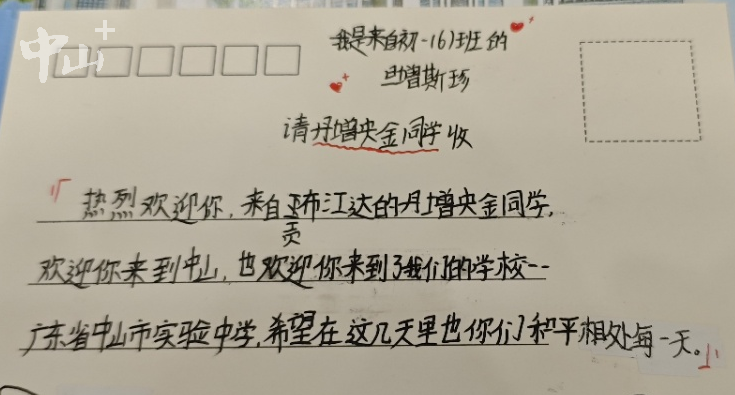 中山+
我是来自初一(6)班的
旦增斯珍
请丹增央金同学收
热烈欢迎你，来自工布江达的丹增央金同学，
贡
欢迎你来到中山，也欢迎你来到了我们的学校--
广东省中山市实验中学，希望在这几天里也你们和平相处每一天。